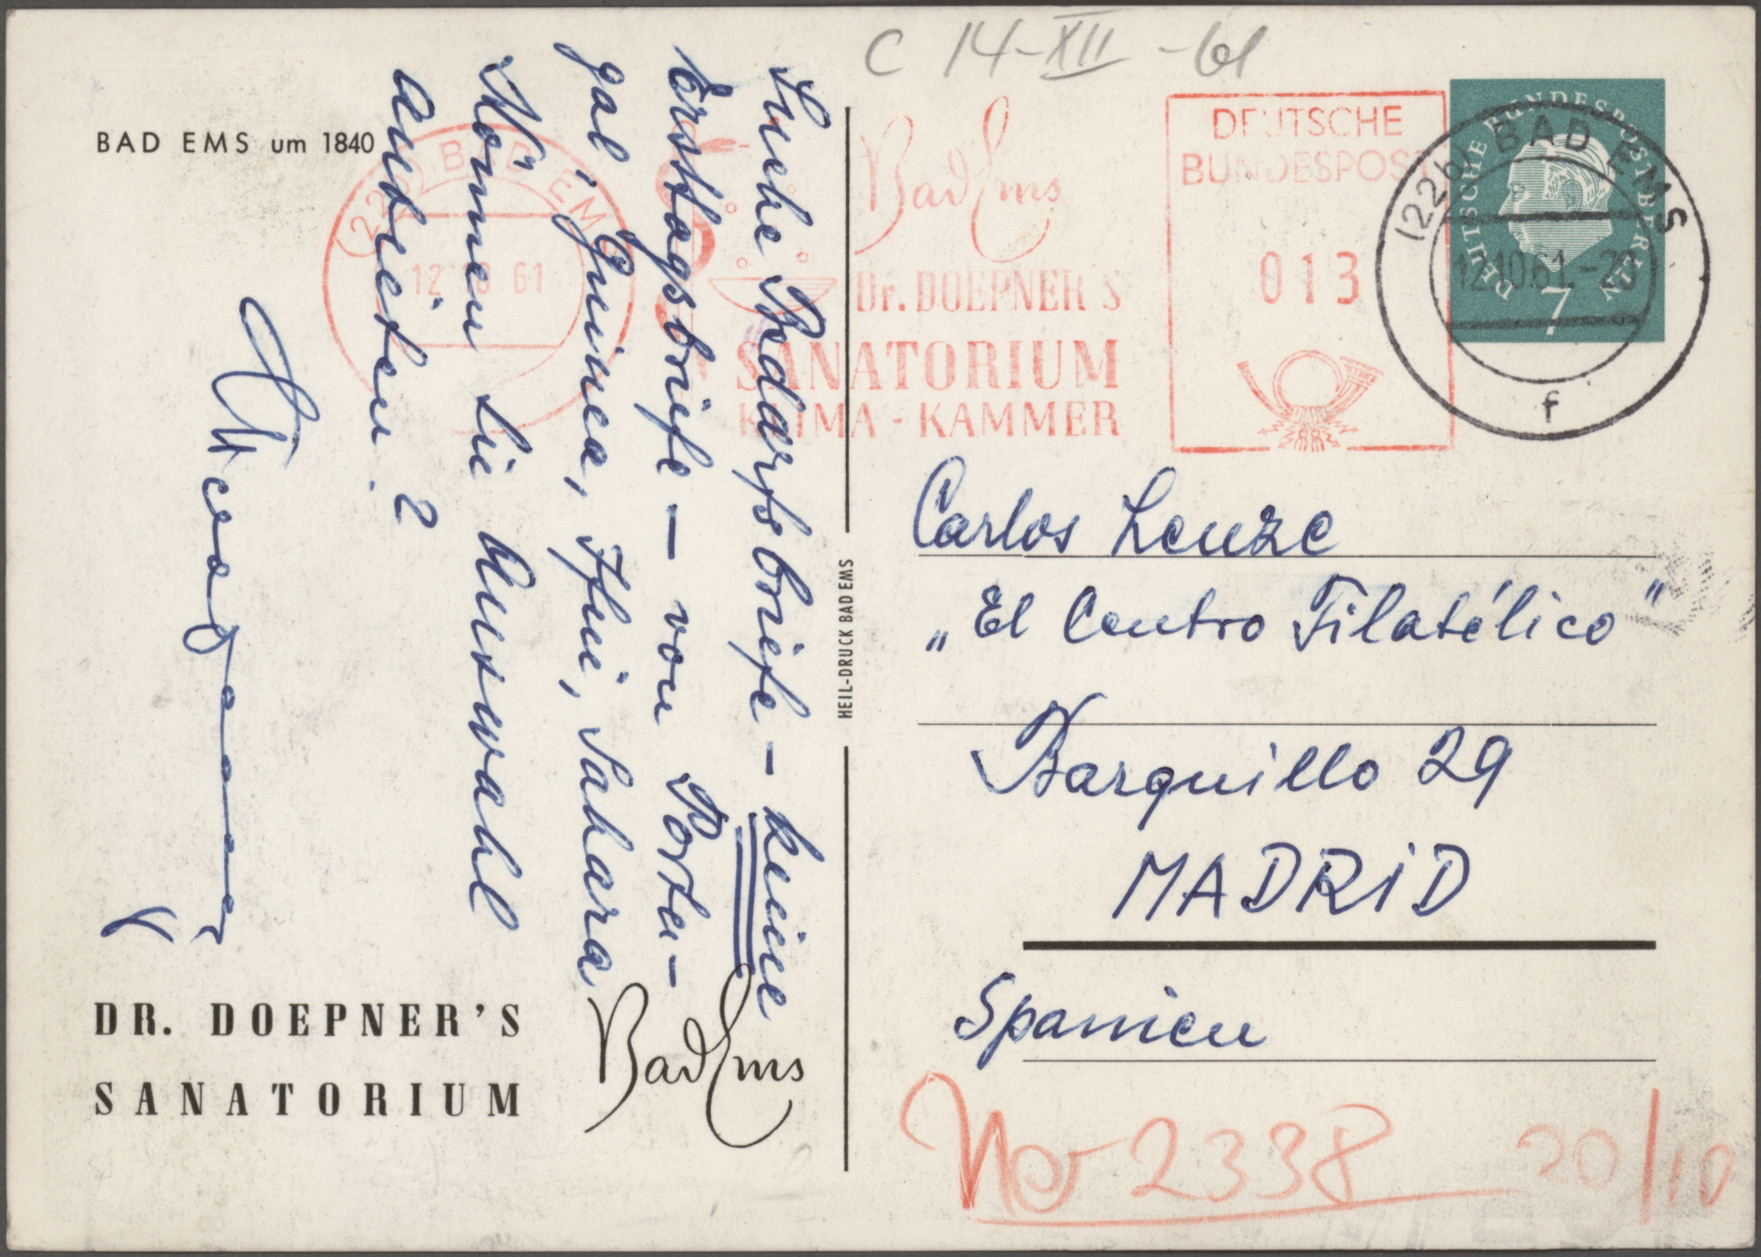 C 14-XII-61
BAD EMS um 1840
Suche Bedarfsbriefe – keine
Ersttagsbriefe – von Portu-
gal, Guinea, Ifni, Sahara.
Können Sie Auswahl
anbieten?
DR. DOEPNER'S
SANATORIUM
Bad Ems
HEIL-DRUCK BAD EMS
BAD EMS
12 10 61
Bad Ems
Dr. DOEPNER'S
SANATORIUM
KLIMA-KAMMER
DEUTSCHE
BUNDESPOST
013
DEUTSCHE BUNDESPOST BERLIN
7
(22b) BAD EMS
12.10.61.-20
f
Carlos Lenze
„El Centro Filatélico"
Barquillo 29
MADRID
Spanien
2338 20/10